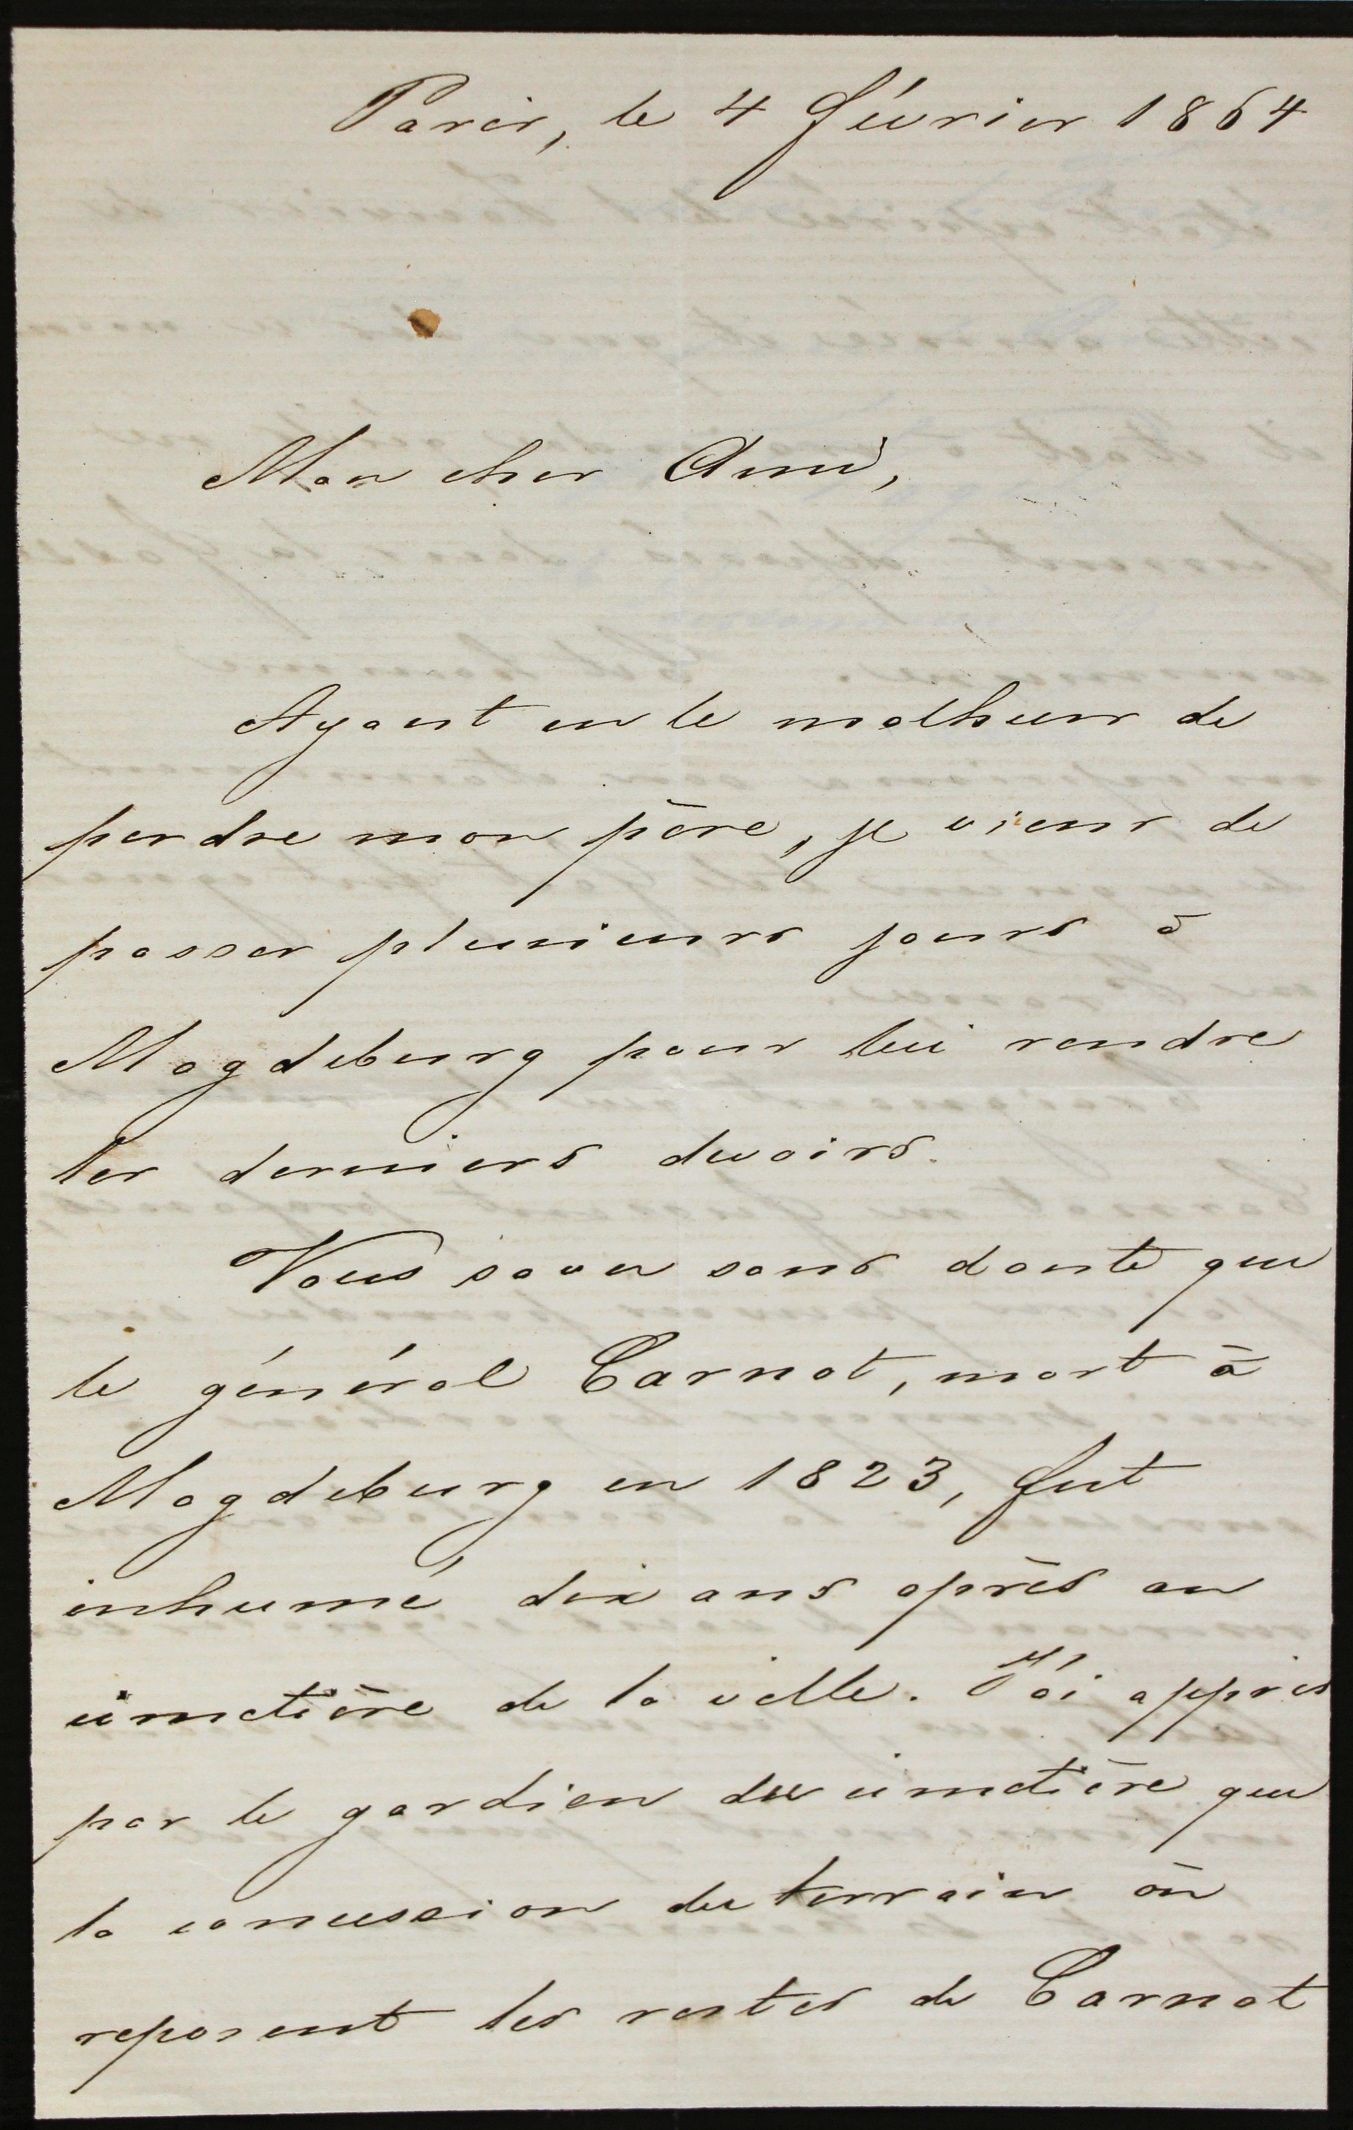 Paris, le 4 février 1864
Mon cher Ami,
Ayant eu le malheur de
perdre mon père, je viens de
passer plusieurs jours à
Magdeburg pour lui rendre
les derniers devoirs.
Vous savez sans doute que
le général Carnot, mort à
Magdeburg en 1823, fut
inhumé dix ans après au
cimetière de la ville. J'ai appris
par le gardien du cimetière que
la concession du terrain où
reposent les restes de Carnot